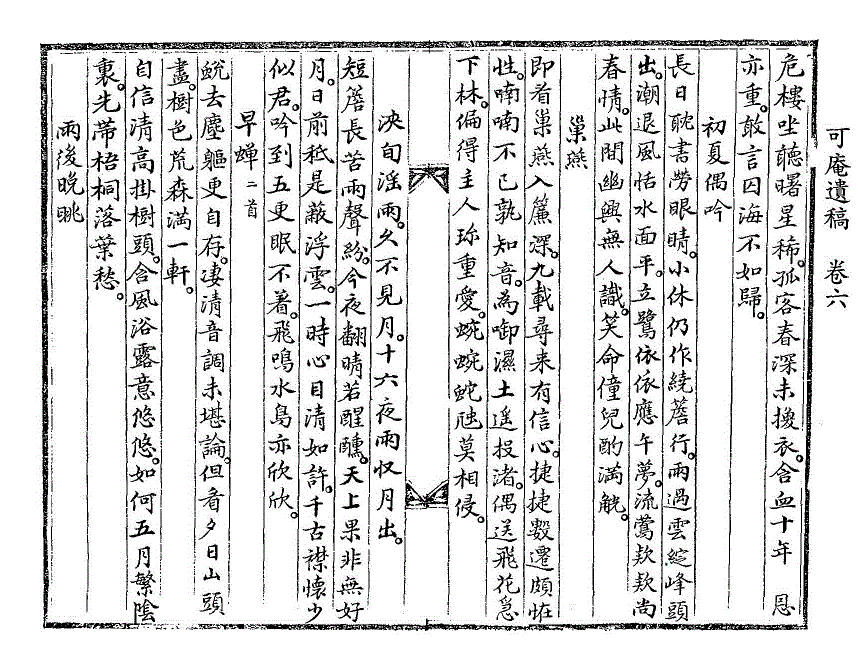 可庵遺稿 卷六
危樓坐聽曙星稀。孤客春深未換衣。含血十年 恩
亦重。敢言囚海不如歸。
初夏偶吟
長日耽書勞眼睛。小休仍作繞簷行。雨過雲綻峰頭
出。潮退風恬水面平。立鷺依依應午夢。流鶯欵欵尚
春情。此間幽興無人識。笑命僮兒酌滿觥。
巢燕
即看巢燕入簾深。九載尋来有信心。捷捷數遷頗恠
性。喃喃不已孰知音。為啣濕土遥投渚。偶送飛花急
下林。偏得主人珎重愛。蜿蜿蛇虺莫相侵。
浹旬淫雨。久不見月。十六夜雨収月出。
短簷長苦雨聲紛。今夜翻晴若醒醺。天上果非無好
月。日前秪是蔽浮雲。一時心目清如許。千古襟懷少
似君。吟到五更眠不着。飛鳴水鳥亦欣欣。
早蟬 二首
蛻去塵軀更自存。凄清音調未堪論。但看夕日山頭
盡。樹色荒森滿一軒。
自信清高掛樹頭。含風浴露意悠悠。如何五月繁陰
裏。先帶梧桐落葉愁。
雨後晚眺